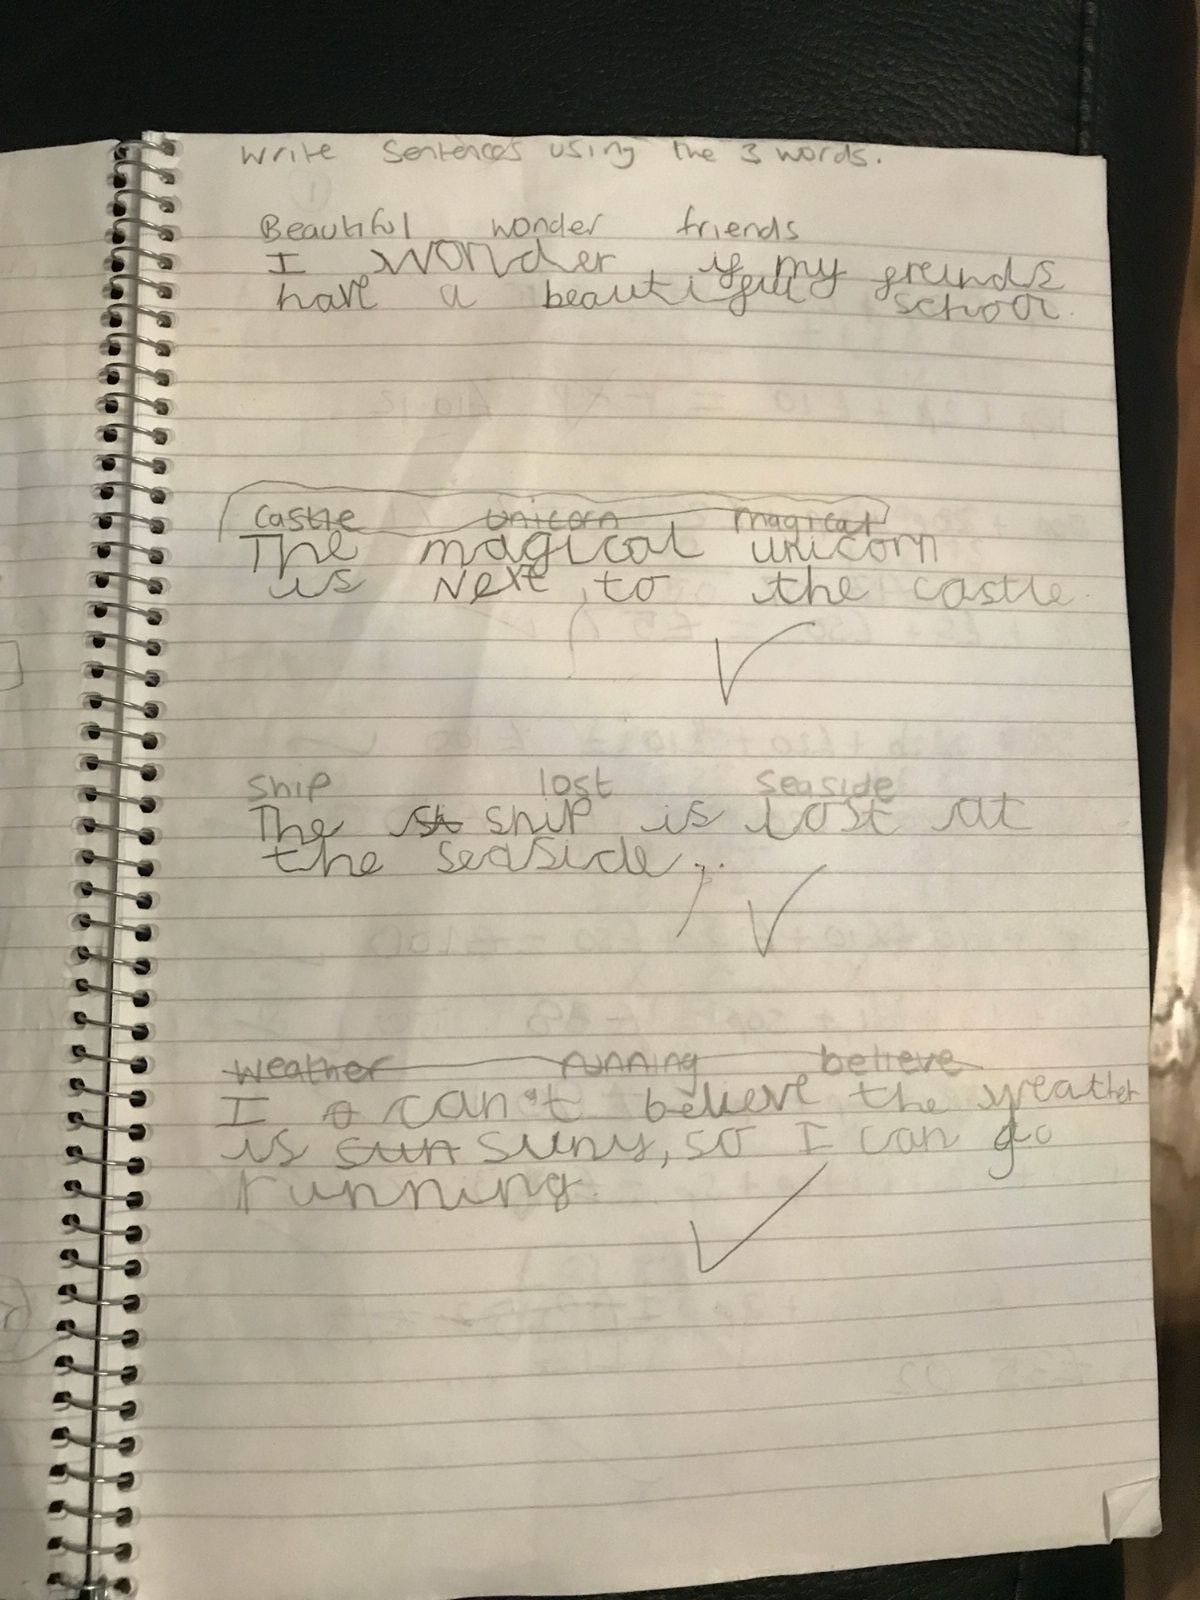 Write Sentences using the 3 words.
Beautiful wonder friends
I wonder if my freinds
have a beautiful school.
Castle Unicorn Magical
The magical unicorn
is Next to the castle.
Ship lost Seaside
The st ship is lost at
the seaside.
weather running believe
I can't believe the weather
is sun suny, so I can go
running.